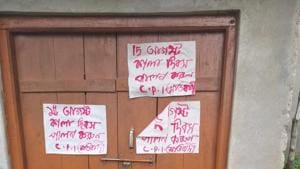 15 আগস্ট
কালা দিবস
পালন করুন
C.P.I (মাওবাদী)
১৫ আগস্ট
কালা দিবস
পালন করুন
C.P.I (মাওবাদী)
দিবস
করুন
C.P.I (মাওবাদী)